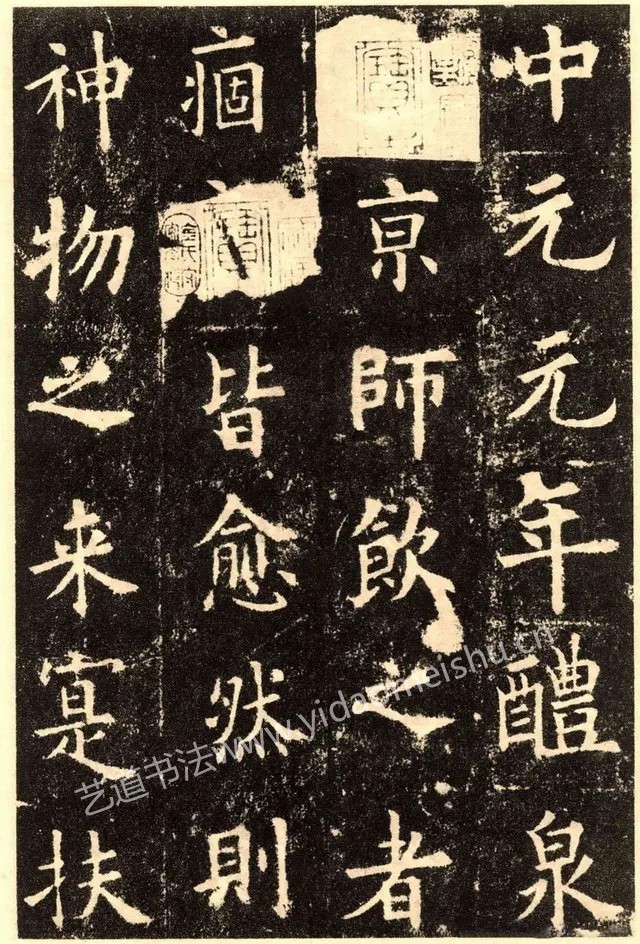 中元元年醴泉
京師飲之者
痼皆愈然則
神物之来寔扶
艺道书法www.yidaomeishu.cn